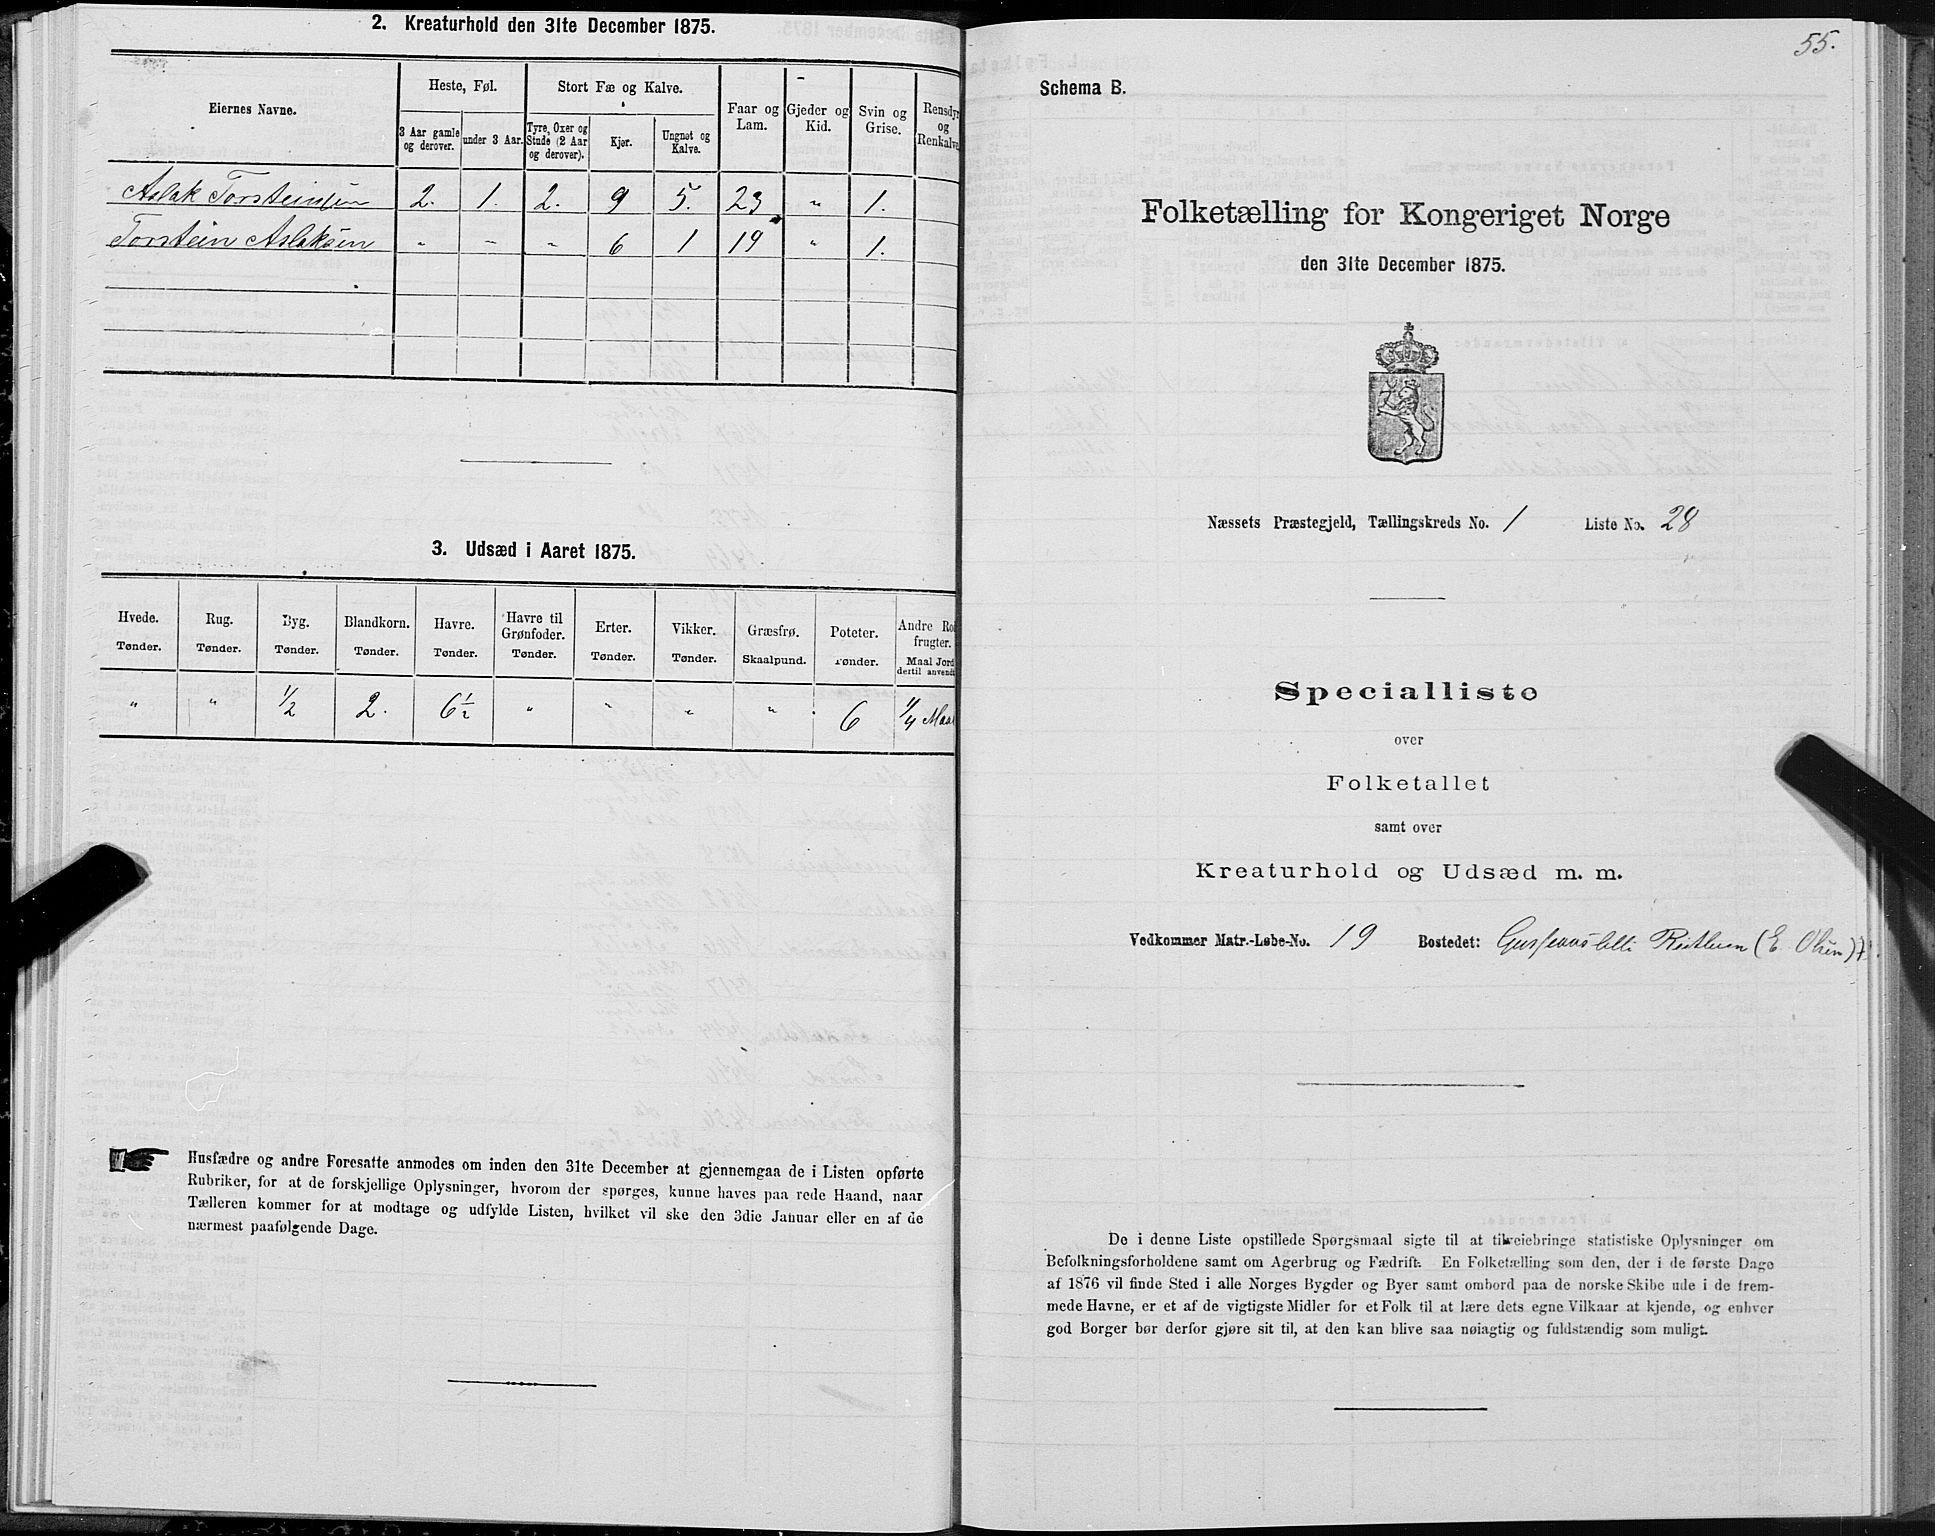 2. Kreaturhold den 31te December 1875.
Eiernes Navne. Heste, Føl. Stort Fæ og Kalve. Faar og Lam. Gjeder og Kid. Svin og Grise. Rensdyr og Renkalve
3 Aar gamle og derover. under 3 Aar. Tyre, Oxer og Stude (2 Aar og derover). Kjør. Ungnøt og Kalve.
Aslak Torsteinsen 2. 1. 2. 9 5. 23 " 1.
Torstein Aslaksen " " " 6 1 19 " 1.
3. Udsæd i Aaret 1875.
Hvede. Rug. Byg. Blandkorn. Havre. Havre til Grønfoder. Erter. Vikker. Græsfrø. Poteter. Andre Ro frugter.
Tønder. Tønder. Tønder. Tønder. Tønder. Tønder. Tønder. Tønder. Skaalpund. Tønder. Maal Jord dertil anvendt
" " 1/2 2. 6 1/2 " " " " 6 1/4 Maal
Husfædre og andre Foresatte anmodes om inden den 31te December at gjennemgaa de i Listen opførte
Rubriker, for at de forskjellige Oplysninger, hvorom der spørges, kunne haves paa rede Haand, naar
Tælleren kommer for at modtage og udfylde Listen, hvilket vil ske den 3die Januar eller en af de
nærmest paafølgende Dage.
55.
Schema B.
Folketælling for Kongeriget Norge
den 31te December 1875.
Næssets Præstegjeld, Tællingskreds No. 1 Liste No. 28
Specialliste
over
Folketallet
samt over
Kreaturhold og Udsæd m. m.
Vedkommer Matr.-Løbe-No. 19 Bostedet: (E. Olsen)
De i denne Liste opstillede Spørgsmaal sigte til at tilveiebringe statistiske Oplysninger om
Befolkningsforholdene samt om Agerbrug og Fædrift. En Folketælling som den, der i de første Dage
af 1876 vil finde Sted i alle Norges Bygder og Byer samt ombord paa de norske Skibe ude i de frem-
mede Havne, er et af de vigtigste Midler for et Folk til at lære dets egne Vilkaar at kjende, og enhver
god Borger bør derfor gjøre sit til, at den kan blive saa nøiagtig og fuldstændig som muligt.